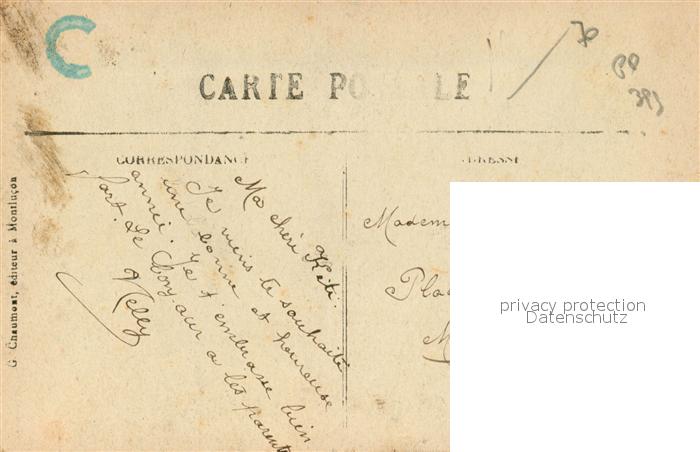 C
70
CARTE PO LE
393
CORRESPONDANCE
ADRESSE
G. Chaumont, éditeur à Montluçon
Ma chéri Kéti.
Je viens te souhaité
une bonne et houreuse
année. Je t'embrasse bien
fort. Le bonjour a tes parents
Nelly
Madem
Pla
M
privacy protection
Datenschutz